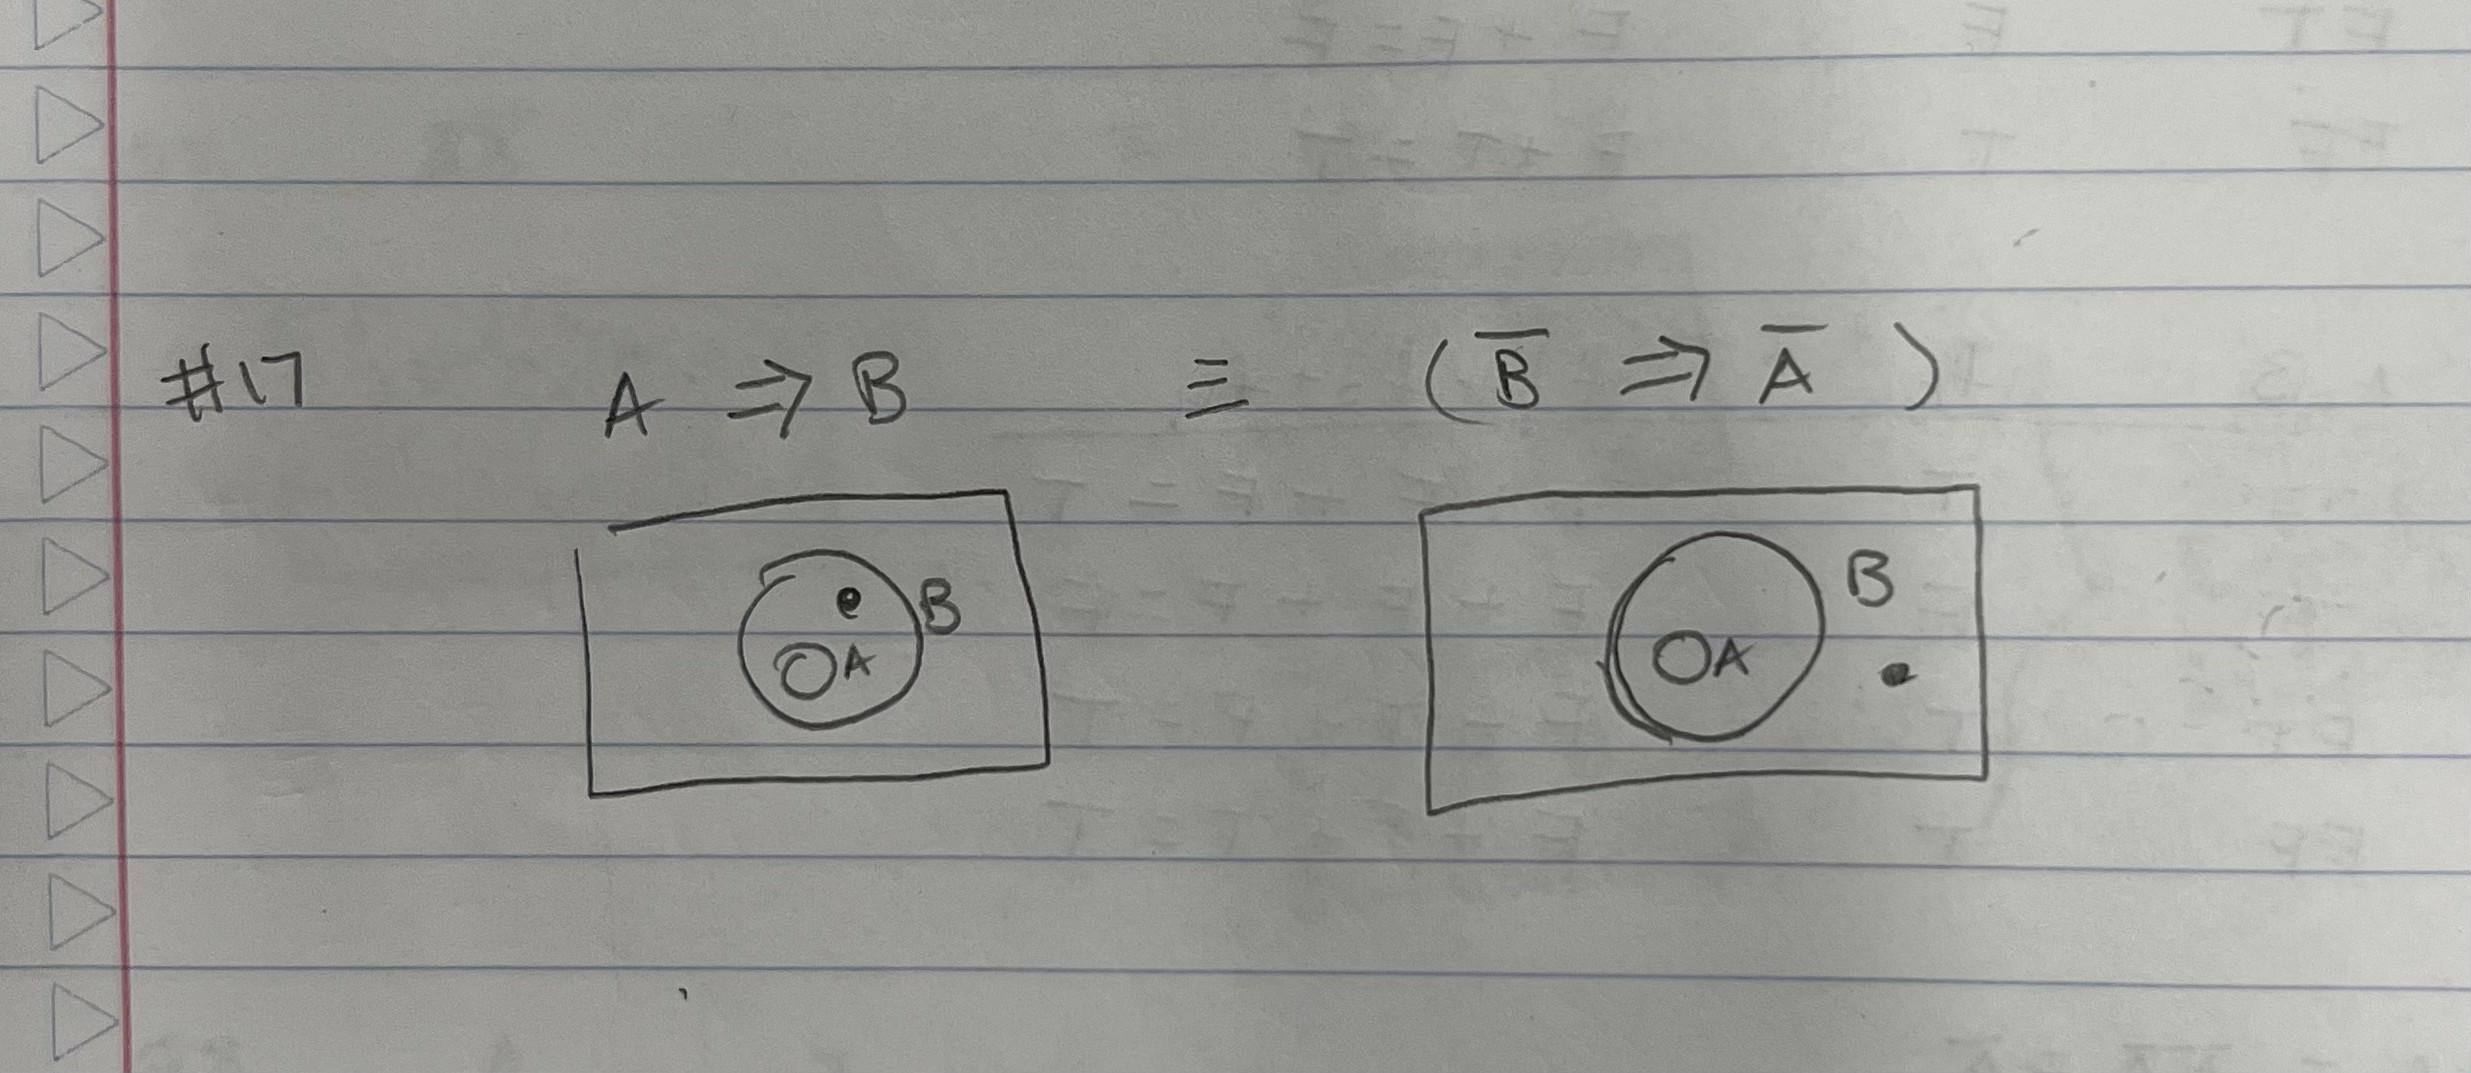 #17 A ⇒ B ≡ (B̅ ⇒ A̅)
B B
A A